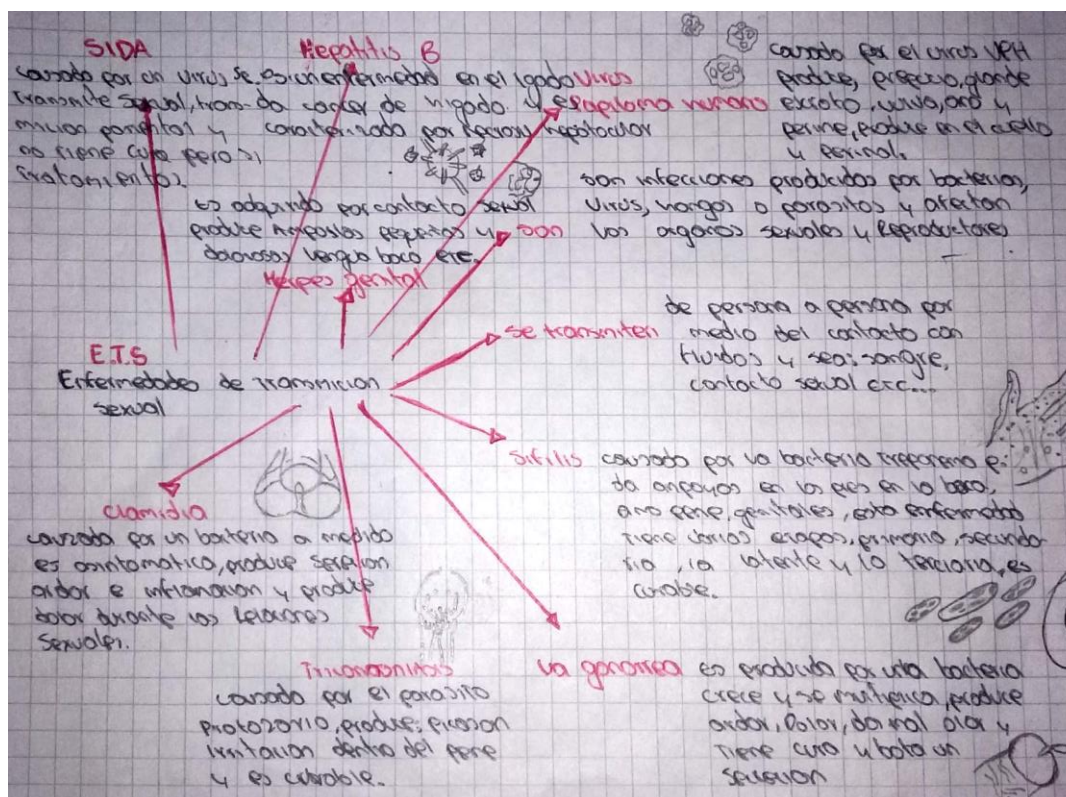 SIDA
causado por un virus se
transmite sexual, trans-
no tiene cura pero si
tratamientos.
Hepatitis B
es un enfermedad en el igado
da cancer de higado y es
caracterizado por necrosis hepatocular
virus
papiloma humano
causado por el virus VPH
produce, prepucio, glande
escroto, vulva, ano y
perine, produce en el cuello
y perinal.
es adquirido por contacto sexual
produce ampollas pequeñas y
dolorosas lengua boca etc.
Herpes genital
son
son infecciones producidos por bacterias,
virus, hongos o parasitos y afectan
los organos sexuales y Reproductores
se transmiten
de persona a persona por
medio del contacto con
fluidos y sea: sangre,
contacto sexual etc...
E.T.S
Enfermedades de transmicion
sexual
Sifilis
causado por la bacteria treponema p.
da en los pies en la boca,
ano pene, genitales, esta enfermedad
tiene varias etapas, primaria, secundar
ria, la latente y la terciaria, es
curable.
clamidia
causada por un bacteria a menudo
es asintomatico, produce
ardor e inflamacion y produce
dolor durante las relaciones
sexuales.
causado por el parasito
protozorio, produce: picason
irritacion dentro del pene
y es curable.
la gonorrea
es producida por una bacteria
crece y se multiplica, produce
ardor, Dolor, da mal olor y
tiene cura y bota un
secrecion